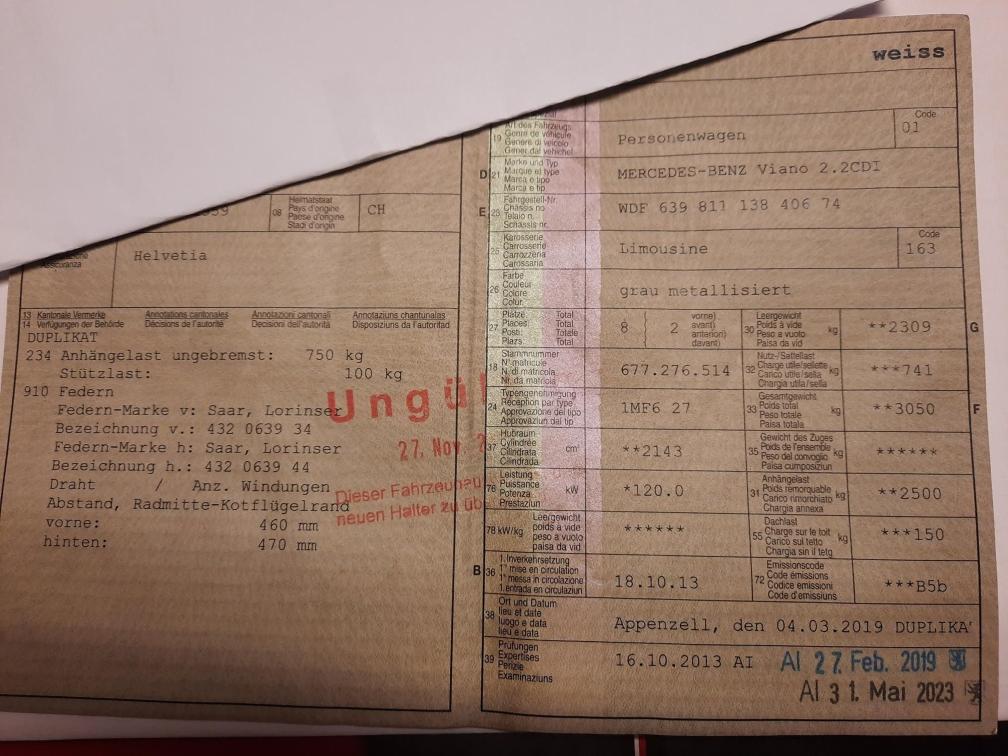 weiss
08
Heimatstaat
Pays d'origine
Paese d'origine
Stadi d'origin
CH
Helvetia
13 Kantonale Vermerke Annotations cantonales Annotazioni cantonali Annotaziuns chantunalas
14 Verfügungen der Behörde Décisions de l'autorité Decisioni dell'autorità Disposiziuns da l'autoritad
DUPLIKAT
234 Anhängelast ungebremst: 750 kg
Stützlast: 100 kg
910 Federn
Federn-Marke v: Saar, Lorinser
Bezeichnung v.: 432 0639 34
Federn-Marke h: Saar, Lorinser
Bezeichnung h.: 432 0639 44
Draht / Anz. Windungen
Abstand, Radmitte-Kotflügelrand
vorne: 460 mm
hinten: 470 mm
27. Nov.
Dieser
neuen Halter zu
19
Art des Fahrzeugs
Genre de véhicule
Genere di veicolo
Gener dal vehichel
Personenwagen
Code
01
D 21
Marke und Typ
Marque et type
Marca e tipo
Marca e tip
MERCEDES-BENZ Viano 2.2CDI
E 23
Fahrgestell-Nr.
Châssis no
Telaio n.
Schassis nr.
WDF 639 811 138 406 74
25
Karosserie
Carrosserie
Carrozzeria
Carossaria
Limousine
Code
163
26
Farbe
Couleur
Colore
Colur
grau metallisiert
27
Plätze Total
Places: Total
Posti: Totale
Plazs: Total
8 2
vorne)
avant)
anteriori)
davant)
30
Leergewicht
Poids à vide
Peso a vuoto
Paisa da vid
kg
**2309
G
18
Stammnummer
N° matricule
N. di matricola
Nr. da matricla
677.276.514
32
Nutz-/Sattellast
Charge utile/sellette
Carico utile/sella
Chargia utila/sella
kg
***741
24
Typengenehmigung
Réception par type
Approvazione del tipo
Approvaziun dal tip
1MF6 27
33
Gesamtgewicht
Poids total
Peso totale
Paisa totala
kg
**3050
F
37
Hubraum
Cylindrée
Cilindrata
Cilindrada
cm³
**2143
35
Gewicht des Zuges
Poids de l'ensemble
Peso del convoglio
Paisa cumposiziun
kg
******
76
Leistung
Puissance
Potenza
Prestaziun
kW
*120.0
31
Anhängelast
Poids remorquable
Carico rimorchiato
Chargia annexa
kg
**2500
78 kW/kg
Leergewicht
poids à vide
peso a vuoto
paisa da vid
******
55
Dachlast
Charge sur le toit
Carico sul tetto
Chargia sin il tetg
kg
***150
B 36
1. Inverkehrsetzung
1re mise en circulation
1a messa in circolazione
1. entrada en circulaziun
18.10.13
72
Emissionscode
Code émissions
Codice emissioni
Code d'emissiuns
***B5b
38
Ort und Datum
lieu et date
luogo e data
lieu e data
Appenzell, den 04.03.2019 DUPLIKA
39
Prüfungen
Expertises
Perizie
Examinaziuns
16.10.2013 AI AI 27. Feb. 2019
AI 31. Mai 2023